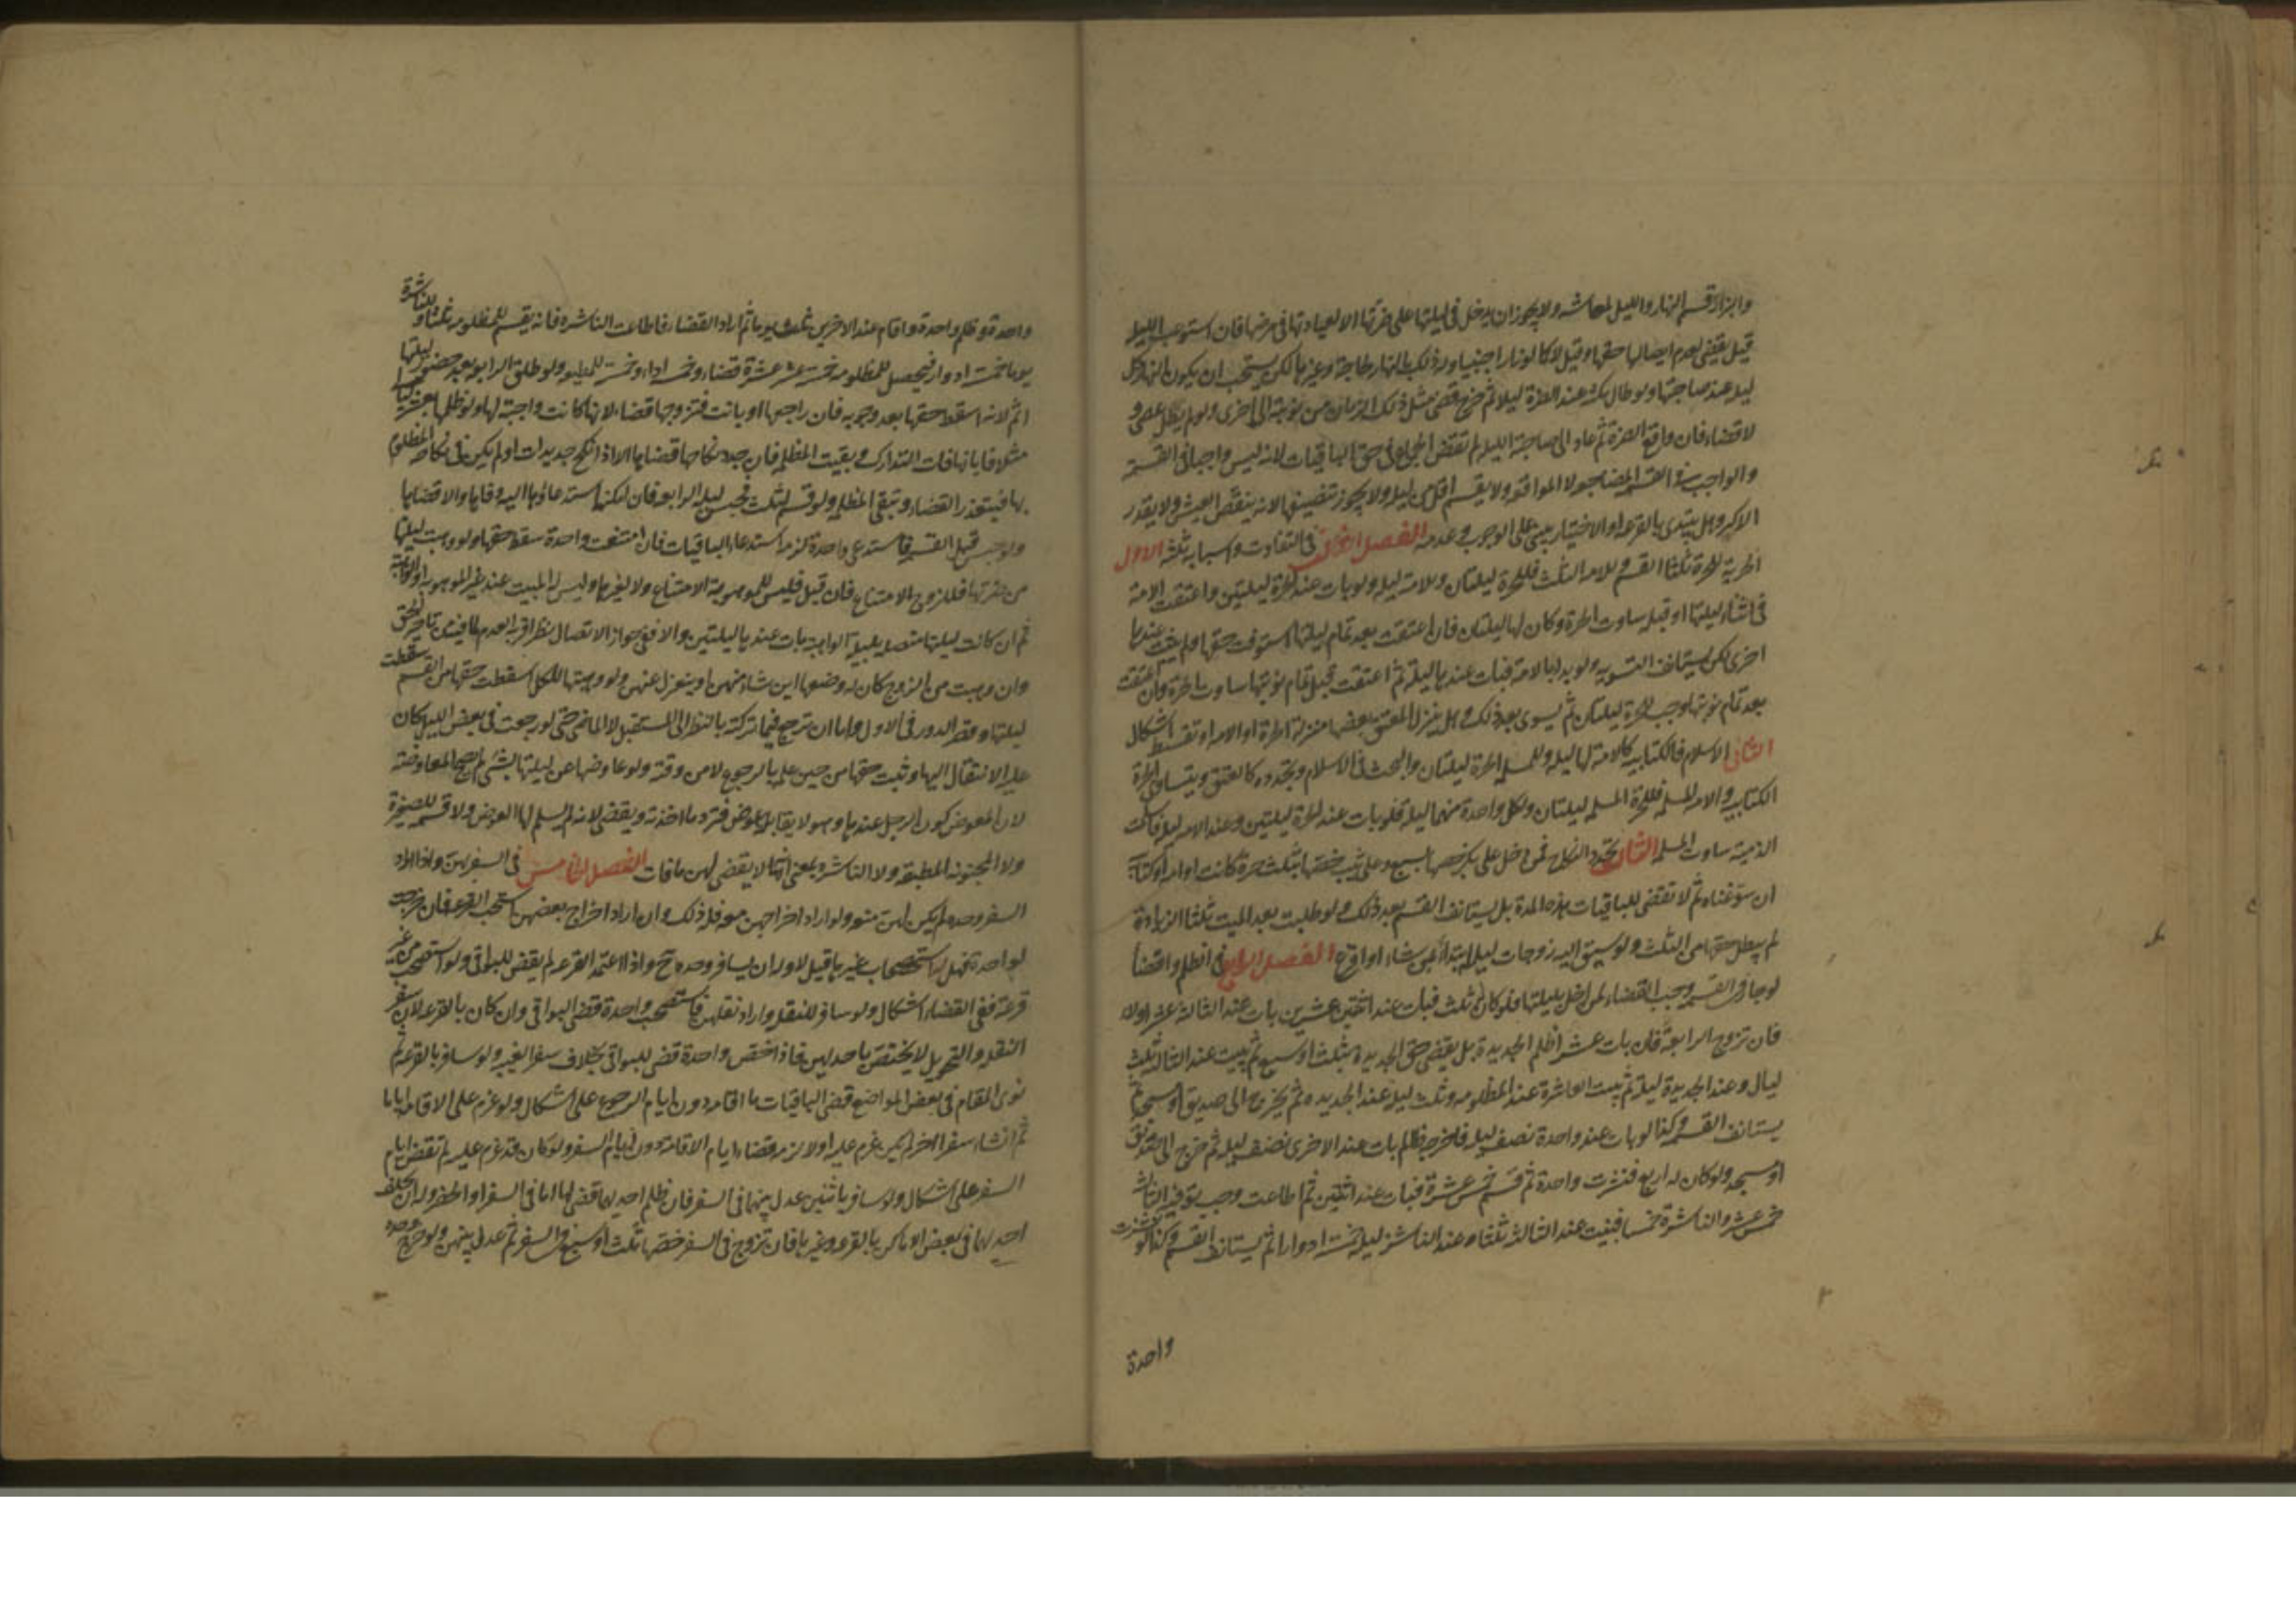 والبزار قسم النهار والليل لمعاشه ولا يجوز ان يدخل في ليلتها على ضرتها الا لعيادتها في مرضها فان استوعب الليلة
قيل يقضي لعدم ايصالها حقها وقيل لا كما لو زار اجنبيا وله ذلك بالنهار لحاجة وغيرها لكن يستحب ان يكون النهار كل
ليلة عند صاحبتها ولو طال مكثه عند الضرة ليلا ثم خرج قضى مثل ذلك الزمان من نوبة الاخرى ولو لم يطل عصى و
لا قضاء فان واقع الضرة ثم عاد الى صاحبة الليلة لم تقض الجماع في حق الباقيات لانه ليس واجبا في القسمة
والواجب في القسم المضاجعة لا المواقعة ولا يقسم اقل من ليلة ولا يجوز تنصيفها لانه ينغص العيش ولا يقدر
الاكثر وهل يبتدي بالقرعة او الاختيار يبنى على الوجوب وعدمه الفصل الثالث في التفاوت واسبابه ثلثة الاول
الحرية للحرة ثلثا القسم وللامة الثلث فللحرة ليلتان وللامة ليلة ولو بات عند الحرة ليلتين واعتقت الامة
في اثناء ليلتها او قبله ساوت الحرة وكان لها ليلتان فان اعتقت بعد تمام ليلتها استوفت حقها ولم يبت عندها
اخرى لكن يستانف التسوية ولو بدأ بالامة فبات عندها ليلة ثم اعتقت قبل تمام نوبتها ساوت الحرة وان اعتقت
بعد تمام نوبتها وجب للحرة ليلتان ثم يسوى بعد ذلك وهل ينزل المعتق بعضها منزلة الحرة او الامة او تقسط اشكال
الثاني الاسلام فالكتابية كالامة لها ليلة وللمسلمة الحرة ليلتان والبحث في الاسلام وتجدده كالعتق ويتساوى الحرة
الكتابية والامة المسلمة فللحرة المسلمة ليلتان ولكل واحدة منهما ليلة فلو بات عند الحرة ليلتين وعند الامة ليلة فاسلمت
الذمية ساوت المسلمة الثالث تجدد النكاح فمن دخل على بكر خصها بسبع وعلى ثيب خصها بثلث حرة كانت او امة او كتابية
ان سوغناه ثم لا تقضى للباقيات هذه المدة بل يستانف القسم بعد ذلك ولو طلبت بعد المبيت ثلثا الزيادة
لم يبطل حقها من الثلث ولو سيق اليه زوجات ليلة ابتدأ بمن شاء او اقرع الفصل الرابع في الظلم والقضاء
لو جار في القسم وجب القضاء لمن اخل بليلتها فلو كان له ثلث فبات عند اثنتين عشرين بات عند الثالثة عشرا ولاء
فان تزوج الرابعة فان بات عشرا ظلم الجديدة بل يقضي حق الجديدة بثلث او سبع ثم يبيت عند الثالثة ثلث
ليال وعند الجديدة ليلة ثم يبيت العاشرة عند المظلومة وثلث ليلة عند الجديدة ثم يخرج الى صديق او مسجد ثم
يستانف القسم وكذا لو بات عند واحدة نصف ليلة فاخرجه ظالم بات عند الاخرى نصف ليلة ثم خرج الى صديق
او مسجد ولو كان له اربع فنشزت واحدة ثم قسم خمس عشرة فبات عند اثنتين ثم اطاعت وجب توفية الثالثة
خمس عشرة والناشزة خمسا فيبيت عند الثالثة ثلثا وعند الناشز ليلة خمسة ادوار ثم يستانف القسم وكذا لو نشزت
واحدة
واحدة وظلم واحدة واقام عند الاخريين ثلثين يوما ثم اراد القضاء فاطاعت الناشزة فانه يقسم للمظلومة ثلثا وللناشزة
يوما خمسة ادوار فيحصل للمظلومة خمسة عشر عشرة قضاء وخمسة اداء وخمسة للمطيعة ولو طلق الرابعة بعد حضور ليلتها
اثم لانه اسقط حقها بعد وجوبه فان راجعها او بانت فتزوجها قضاء لانها كانت واجبة لها ولو ظلمها بعشر ليال
مثلا فابانها فات التدارك وبقيت المظلمة فان جدد نكاحها قضاها الا اذا نكح جديدات او لم يكن في نكاحه المظلوم
بها فيتعذر القضاء وتبقى المظلمة ولو قسم لثلث فحبس ليلة الرابعة فان امكنه استدعاؤها اليه وفاها والا قضاها
ولو حبس قبل القسم فاستدعى واحدة لزمه استدعاء الباقيات فان امتنعت واحدة سقط حقها ولو وهبت ليلتها
من ضرتها فللزوج الامتناع فان قبل فليس للموهوبة الامتناع ولا لغيرها وليس له المبيت عند غير الموهوبة او الواهبة
ثم ان كانت ليلتها متصلة بليلة الواهبة بات عندها ليلتين والا ففي جواز الاتصال نظر اقربه العدم لما فيه من تاخير الحق
وان وهبت من الزوج كان له وضعها اين شاء منهن او ينعزل عنهن ولو وهبتها للكل سقطت حقها من القسم سقطت
ليلتها وقصر الدور في الاول ولها ان ترجع فيما تركته بالنظر الى المستقبل لا الماضي حتى لو رجعت في بعض الليل كان
عليه الانتقال اليها وثبت حقها من حين علمه بالرجوع لا من وقته ولو عاوضها عن ليلتها بشيء لم تصح المعاوضة
لان المعوض كون الرجل عندها وهو لا يقابل بعوض فترد ما اخذته ويقضي لانه لم يسلم لها العوض ولا قسمة للصغيرة
ولا المجنونة المطبقة ولا الناشزة بمعنى انه لا يقضي لهن ما فات الفصل الخامس في السفر بهن واذا اراد
السفر وحده لم يكن لهن منعه ولو اراد اخراجهن معه فله ذلك وان اراد اخراج بعضهن استحب القرعة فان خرجت
لواحدة فهل له استصحاب غيرها قيل لا وله ان يسافر وحده ح واذا اعتمد القرعة لم يقض للبواقي ولو استصحب من غير
قرعة ففي القضاء اشكال ولو سافر للنقلة واراد نقلهن فاستصحب واحدة قضى للبواقي وان كان بالقرعة لان سفر
النقلة والتحويل لا يختص باحديهن فاذا اختص واحدة قضى للبواقي بخلاف سفر الغيبة ولو سافر بالقرعة ثم
نوى المقام في بعض المواضع قضى للباقيات ما اقامه دون ايام الرجوع على اشكال ولو عزم على الاقامة اياما
ثم انشاء سفرا اخر لم يكن عزم عليه اولا لزمه قضاء ايام الاقامة دون ايام السفر ولو كان قد عزم عليه لم تقض ايام
السفر على اشكال ولو سافر باثنتين عدل بينهما في السفر فان ظلم احديهما قضى لها اما في السفر او الحضر وله ان يخلف
احديهما في بعض الاماكن بالقرعة وغيرها فان تزوج في السفر خصها بثلث او سبع في السفر ثم عدل بينهن ولو خرج وحده